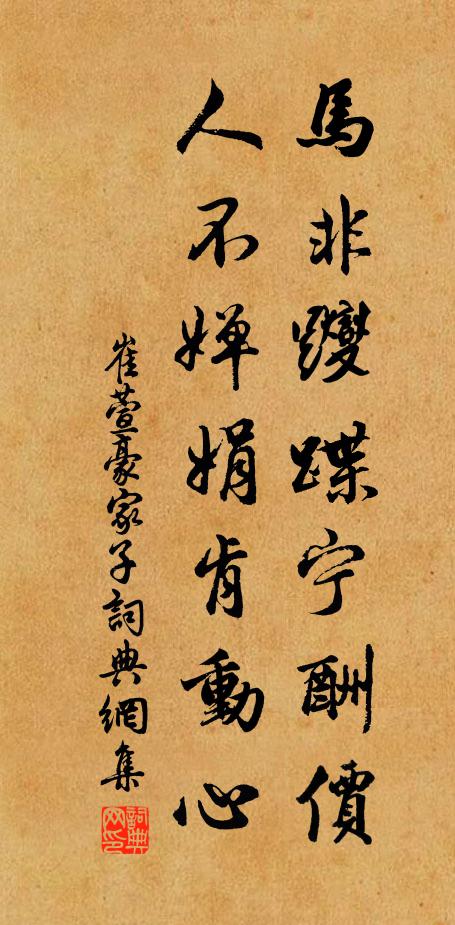 馬非躞蹀宁酬價
人不嬋娟肯動心
崔萱豪家子詞典網集
詞典网印